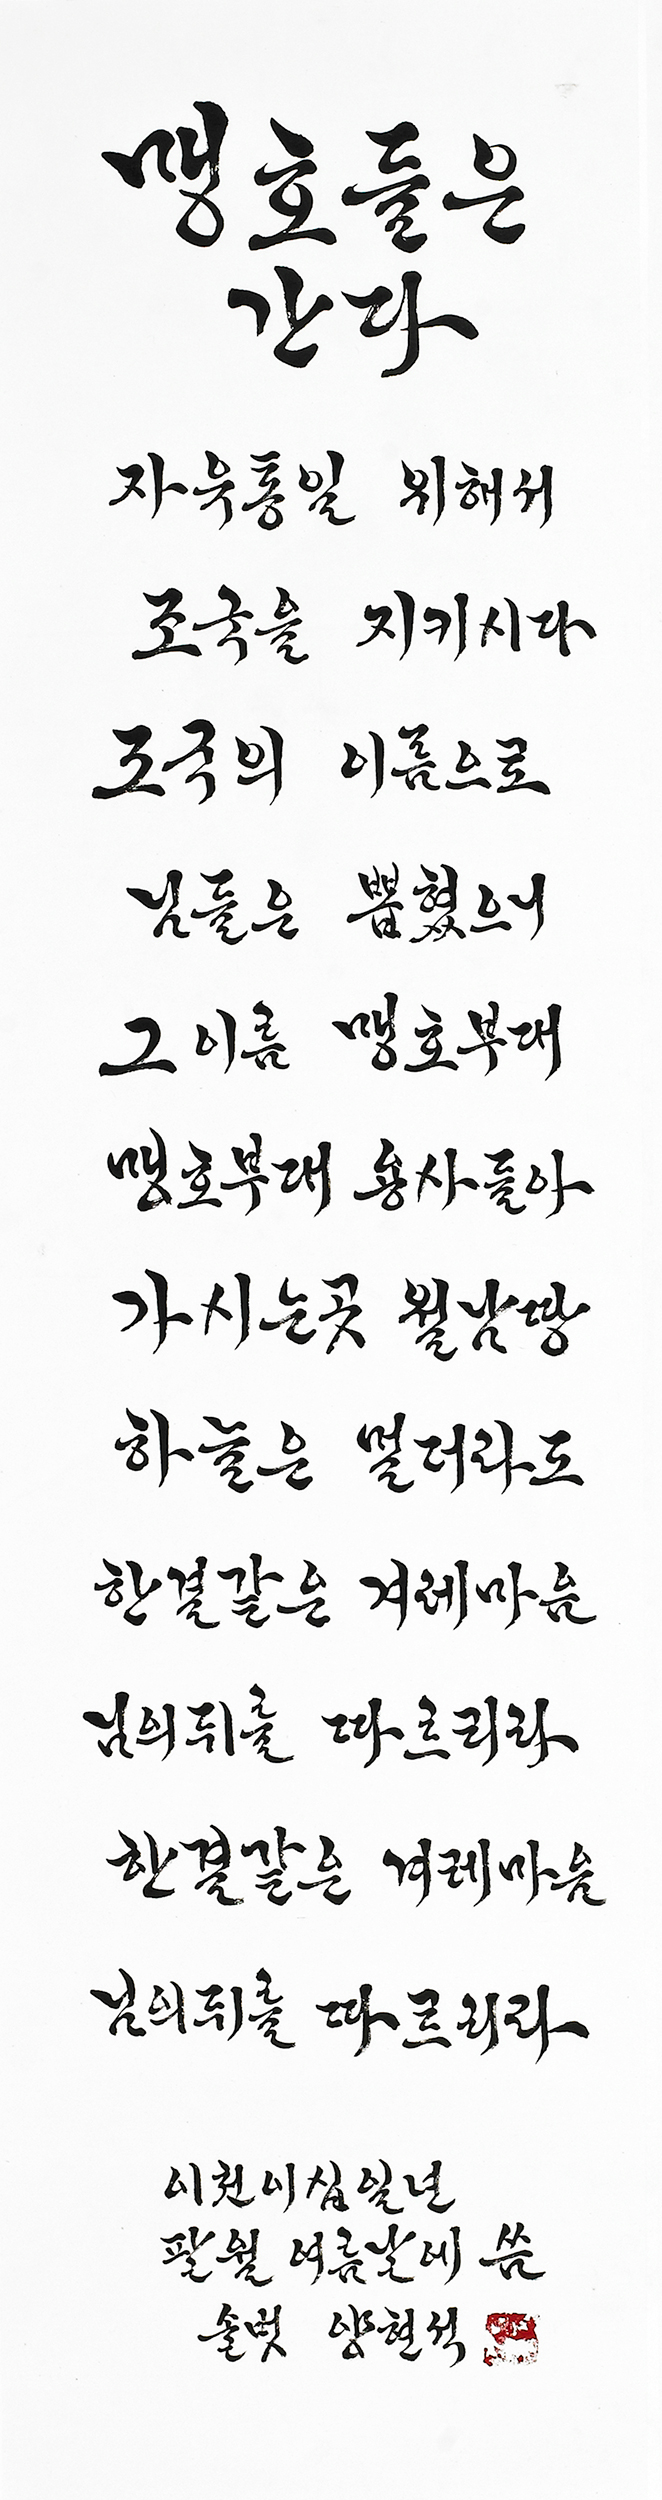 맹호들은
간다
자유통일 위해서
조국을 지키시다
조국의 이름으로
님들은 뽑혔으니
그 이름 맹호부대
맹호부대 용사들아
가시는곳 월남땅
하늘은 멀더라도
한결같은 겨레마음
님의뒤를 따르리라
한결같은 겨레마음
님의뒤를 따르리라
이천이십일년
팔월 여름날에 씀
솔벗 양현석